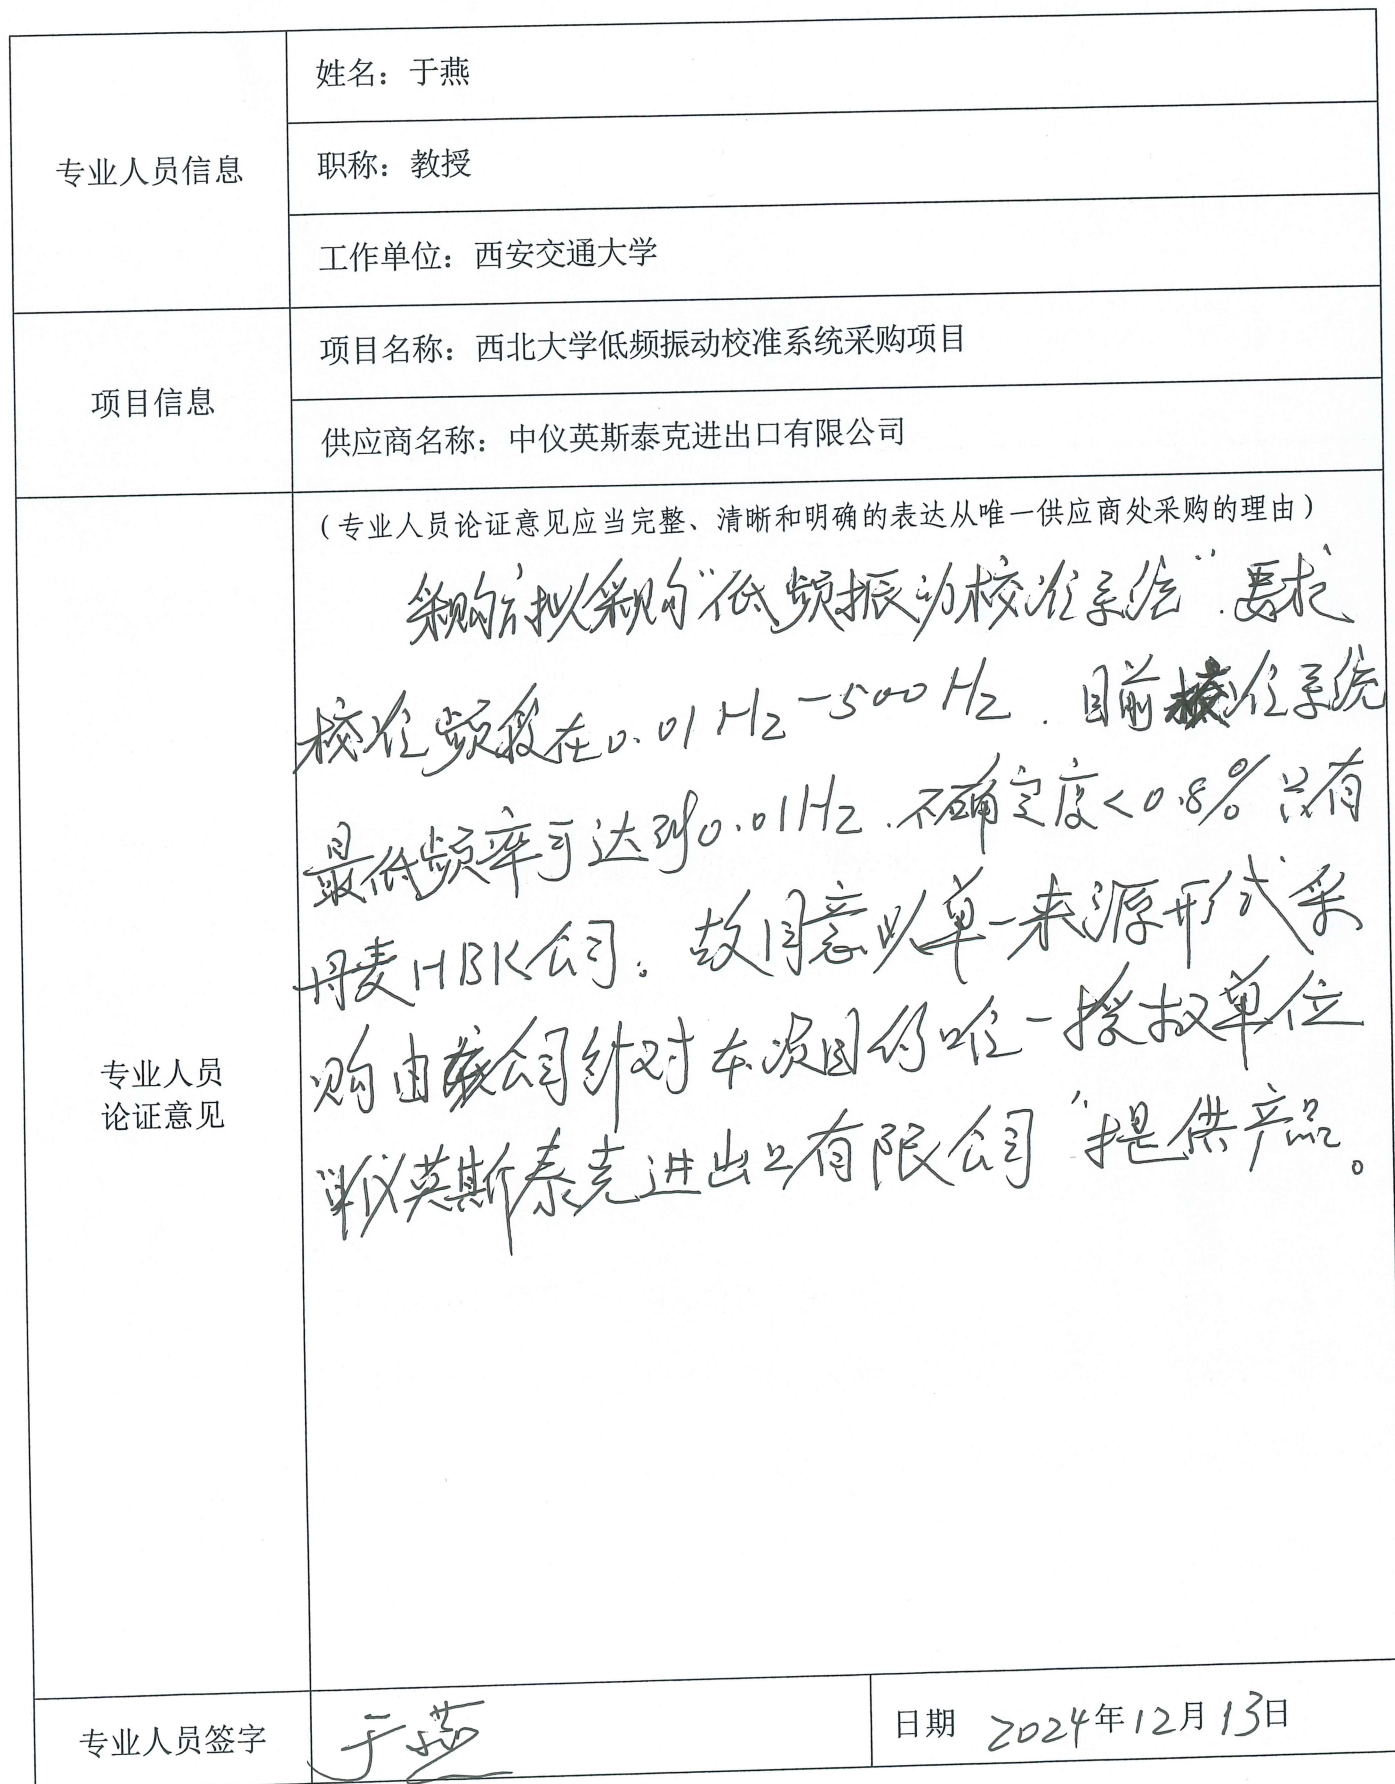 姓名：于燕
专业人员信息
职称：教授
工作单位：西安交通大学
项目名称：西北大学低频振动校准系统采购项目
项目信息
供应商名称：中仪英斯泰克进出口有限公司
（专业人员论证意见应当完整、清晰和明确的表达从唯一供应商处采购的理由）
拟采购“低频振动校准系统”.要求
校准频段在0.01Hz-500Hz.目前校准系统
最低频率可达到0.01Hz.不确定度<0.8%只有
丹麦HBK公司。故同意以单一来源形式采
购由该公司针对本项目的唯一授权单位
专业人员
论证意见
中仪英斯泰克进出口有限公司”提供产品。
专业人员签字
于燕
日期 2024年12月13日